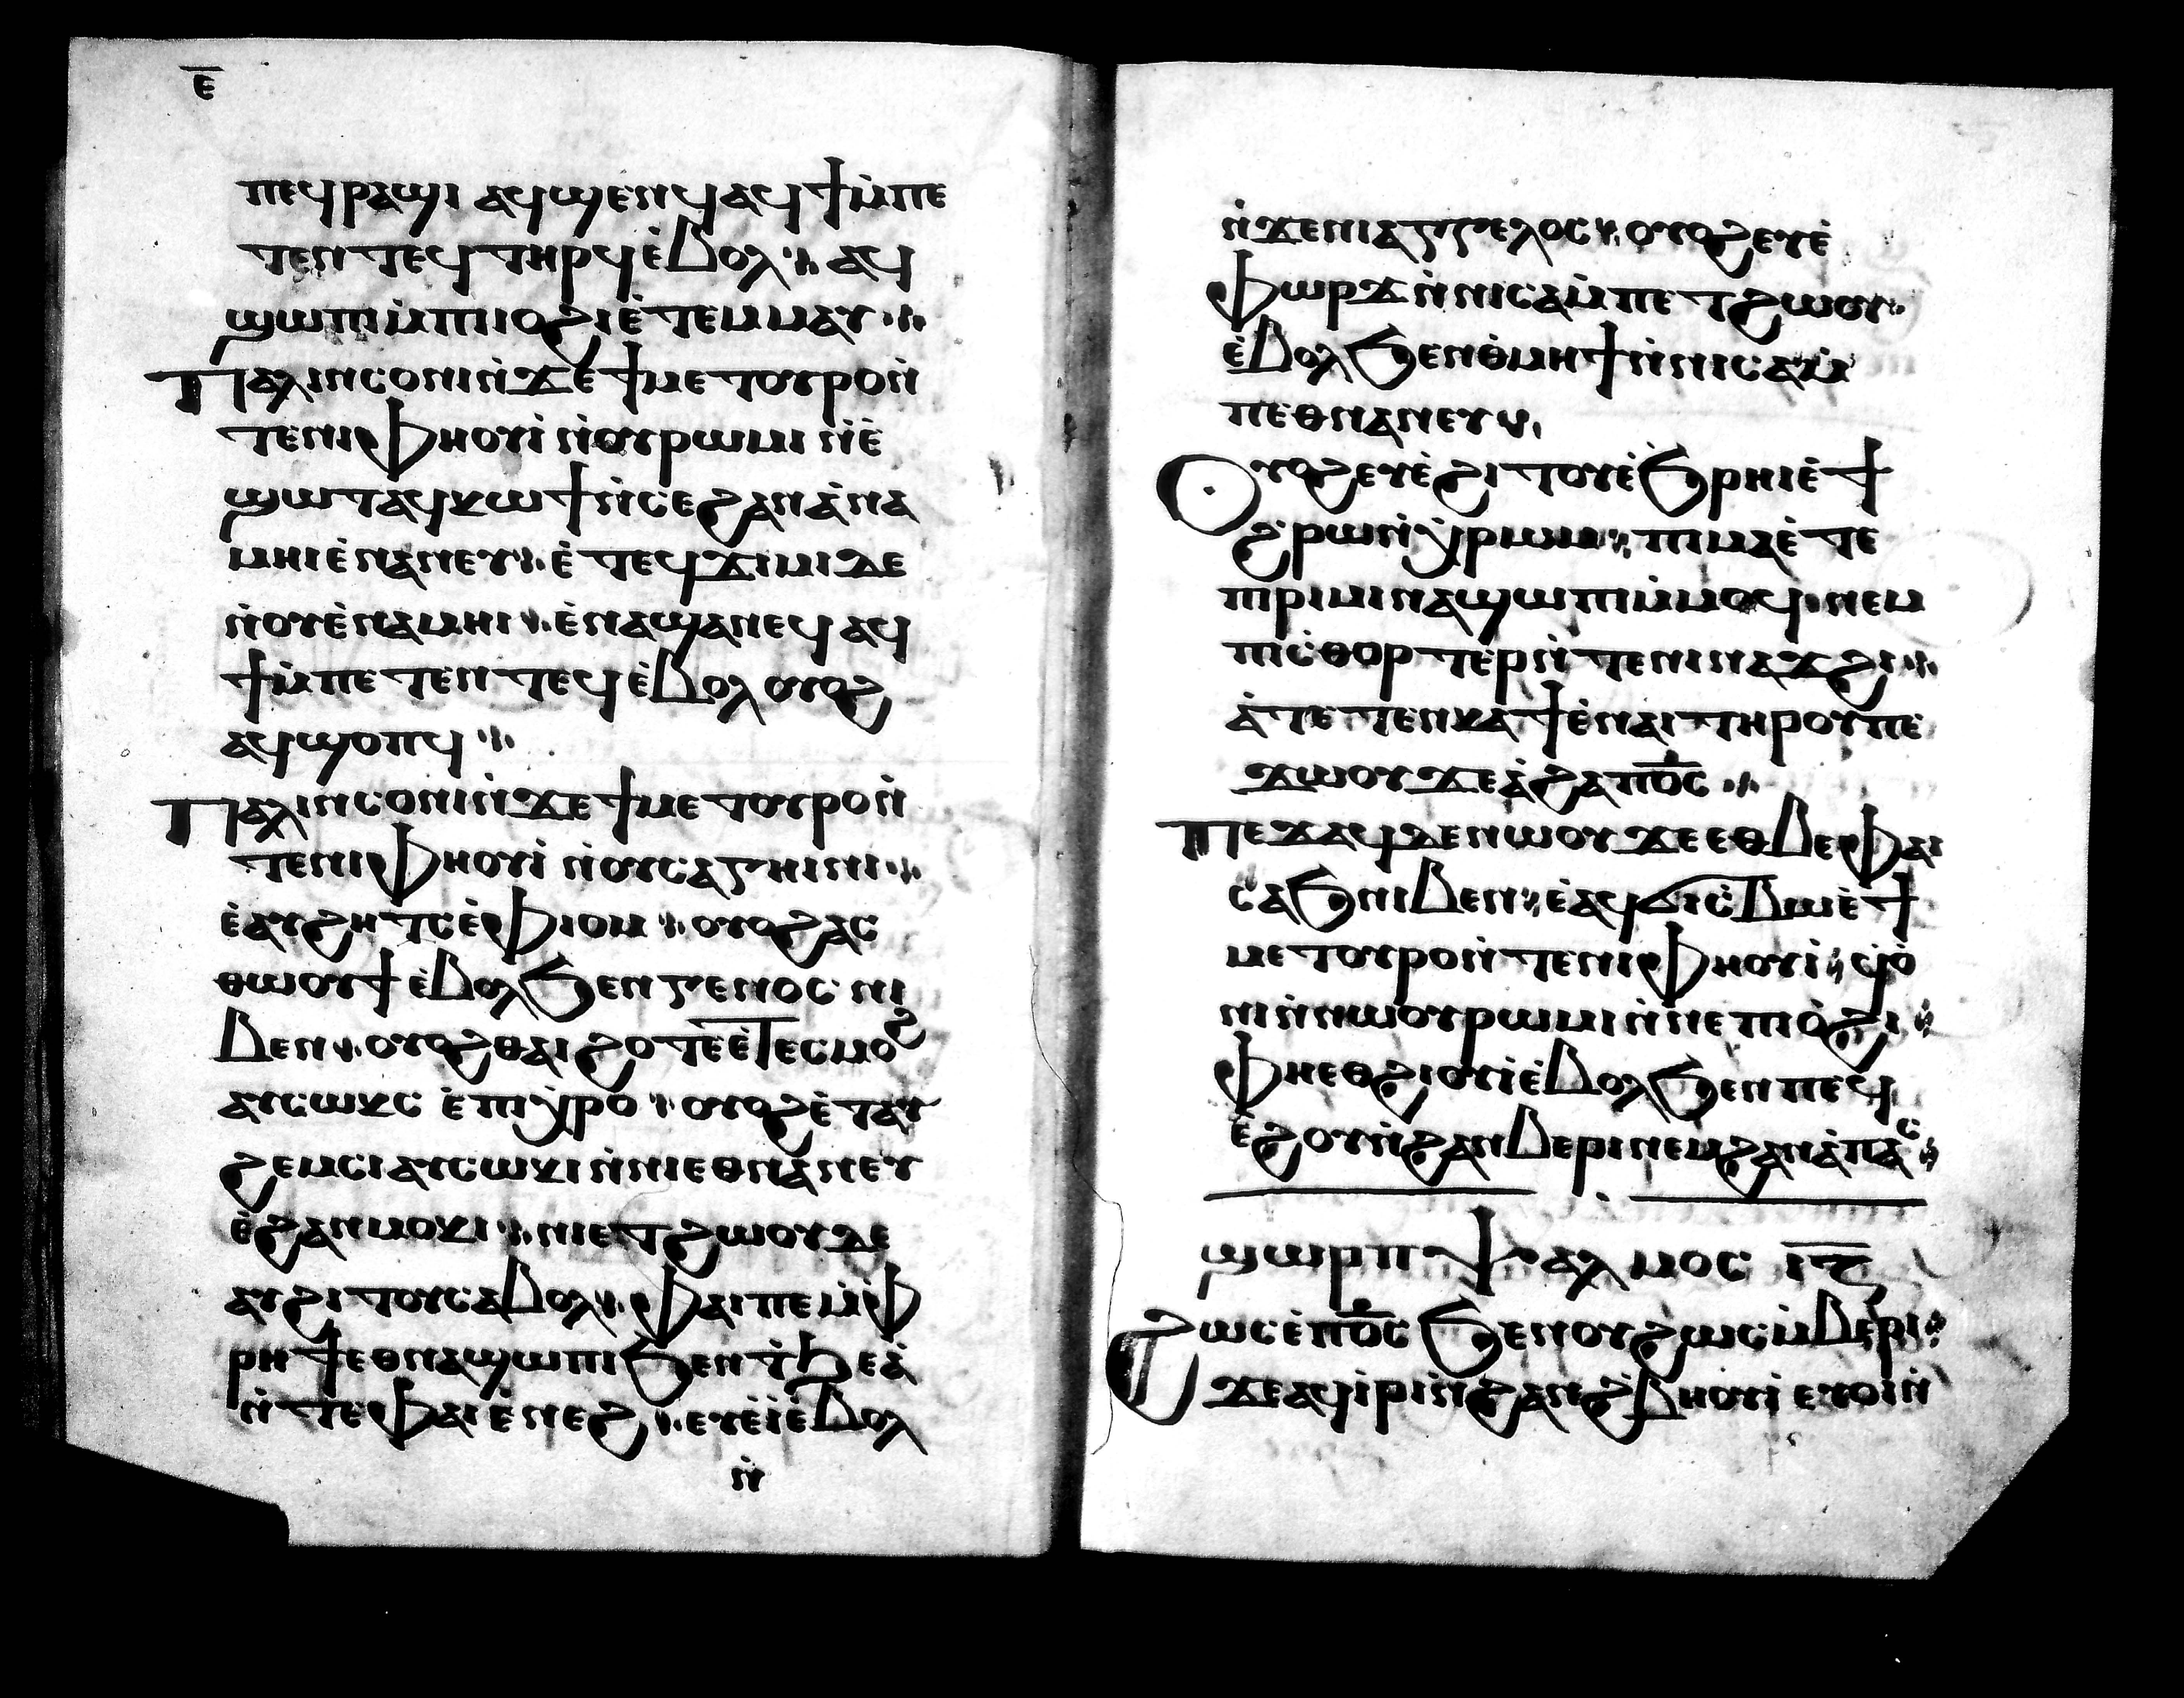 ⲉ̅
ⲡⲉϥⲣⲁϣⲓ ⲁϥϣⲉⲛϥ ⲁϥϯⲙ̀ⲡⲉ
ⲧⲉⲛⲧⲉϥ ⲧⲏⲣϥ ⲉ̀ⲃⲟⲗ ⁘ ⲁϥ
ϣⲱⲡⲙ̀ⲡⲓⲓⲟϩⲓ ⲉ̀ⲧⲉⲙⲙⲁⲩ ⁘
Ⲡⲁⲗⲓⲛ ⲥⲟⲛⲓ ⲛ̀ϫⲉ ϯⲙⲉⲧⲟⲩⲣⲟ ⲛ̀
ⲧⲉⲛⲓⲫⲏⲟⲩⲓ̀ ⲛ̀ⲟⲩⲣⲱⲙⲓ ⲛ̀ⲉ̀
ϣⲱⲧ ⲁϥⲕⲱϯ ⲛ̀ⲥⲉ ϩⲁⲛⲁ̀ⲛⲁ
ⲙⲏⲓ ⲉ̀ⲛⲁⲛⲉⲩ ⁘ ⲉ̀ⲧⲉϥϫⲓⲙⲓ ⲇⲉ
ⲛ̀ⲟⲩⲉ̀ⲛⲁⲙⲏⲓ ⁘ ⲉ̀ⲛⲁϣⲁⲛⲉϥ ⲁϥ
ϯⲙ̀ⲡⲉⲧⲉⲛⲧⲉϥ ⲉ̀ⲃⲟⲗ ⲟⲩⲟϩ
ⲁϥϣⲟⲡϥ ⁘
Ⲡⲁⲗⲓⲛ ⲥⲟⲛⲓ ⲛ̀ϫⲉ ϯⲙⲉⲧⲟⲩⲣⲟ ⲛ̀
ⲧⲉⲛⲓⲫⲏⲟⲩⲓ̀ ⲛ̀ⲟⲩⲥⲁⲅⲏⲓⲛⲓ ⁘
ⲉ̀ⲁⲩϩⲏⲧⲥ ⲉ̀ⲫⲓⲟⲙ ⁘ ⲟⲩⲟϩ ⲁⲥ
ⲑⲱⲟⲩϯ ⲉ̀ⲃⲟⲗϧⲉⲛ ⲅⲉⲛⲟⲥ ⲛⲓ
ⲃⲉⲛ ⁘ ⲟⲩⲟϩ ⲑⲁⲓ ϩⲟⲧⲉ ⲉ̀ⲧⲉⲥⲙⲟϩ
ⲁⲩⲥⲱⲕⲥ ⲉ̀ⲡⲓⲭⲣⲟ ⁘ ⲟⲩⲟϩ ⲉ̀ⲧⲁⲩ
ϩⲉⲙⲥⲓ ⲁⲩⲥⲱⲕⲓ ⲛ̀ⲛⲓⲉⲑⲛⲁⲛⲉⲩ
ⲉ̀ϩⲁⲛⲙⲟⲕⲓ ⁘ ⲛⲓⲉⲧϩⲱⲟⲩ ⲇⲉ
ⲁⲩϩⲓⲧⲟⲩ ⲥⲁⲃⲟⲗ ⁘ ⲫⲁⲓ ⲡⲉ ⲙ̀ⲫ
ⲣⲏϯ ⲉⲑⲛⲁϣⲱⲡⲓ ϧⲉⲛ ϯϧⲉⲁ̀
ⲛ̀ⲧⲉ ⲫⲁⲓ ⲉ̀ⲛⲉϩ ⁘ ⲉⲩⲉ̀ⲓ̀ ⲉ̀ⲃⲟⲗ
ⲛ̀
ⲛ̀ϫⲉ ⲛⲓⲁⲅⲅⲉⲗⲟⲥ ⁘ ⲟⲩⲟϩ ⲉⲩⲉ̀
ⲫⲱⲣϫ ⲛ̀ⲛⲓⲥⲁⲙ̀ⲡⲉⲧϩⲱⲟⲩ
ⲉ̀ⲃⲟⲗϧⲉⲛ ⲑ̀ⲙⲏϯ ⲛ̀ⲛⲓⲥⲁⲙ̀
ⲡⲉⲑⲛⲁⲛⲉⲩ ⁘
Ⲟⲩⲟϩ ⲉⲩⲉ̀ϩⲓⲧⲟⲩ ⲉ̀ϧⲣⲏⲓ ⲉ̀ϯ
ϩⲣⲱ ⲛ̀ⲭ̀ⲣⲱⲙ ⁘ ⲡⲓⲙⲁ ⲉ̀ⲧⲉ
ⲡⲣⲓⲙⲓ ⲛⲁϣⲱⲡⲓ ⲙ̀ⲙⲟϥ ⁘ ⲛⲉⲙ
ⲡⲓⲥ̀ⲑⲟⲣⲧⲉⲣ ⲛ̀ⲧⲉ ⲛⲓⲛⲁϫϩⲓ ⁘
ⲁ̀ⲧⲉⲧⲉⲛⲕⲁϯ ⲉ̀ⲛⲁⲓ ⲧⲏⲣⲟⲩ ⲡⲉ
ϫⲱⲟⲩ ϫⲉ ⲁ̀ϩⲁ ⲡ̅ⲟ̅ⲥ̅ ⁘
Ⲡⲉϫⲁϥ ⲇⲉ ⲛⲱⲟⲩ ϫⲉ ⲉⲑⲃⲉ ⲫⲁⲓ
ⲥⲁϧ ⲛⲓⲃⲉⲛ ⁘ ⲉ̀ⲁϥϭⲓⲥ̀ⲃⲱ ⲉ̀ϯ
ⲙⲉⲧⲟⲩⲣⲟ ⲛ̀ⲧⲉ ⲛⲓⲫⲏⲟⲩⲓ̀ ⁘ ϥⲟ̀
ⲛⲓ ⲛ̀ⲛⲱⲟⲩⲣⲱⲙⲓ ⲛ̀ⲛⲉⲡⲓⲟ̀ϩⲓ ⁘
ⲫⲏⲉⲑϩⲓⲟⲩⲓ̀ ⲉ̀ⲃⲟⲗϧⲉⲛ ⲡⲉϥ
ⲉ̀ϩⲟ ⲛ̀ϩⲁⲛⲃⲉⲣⲓ ⲛⲉⲙ ϩⲁⲛⲁ̀ⲡⲁⲥ ⁘
ϣⲱⲣⲡ ⲯⲁⲗⲙⲟⲥ ⲓ̅ⲍ̅
Ϩⲱⲥ ⲉ̀ⲡ̅ⲟ̅ⲥ̅ ϧⲉⲛ ⲟⲩϩⲱⲥ ⲙ̀ⲃⲉⲣⲓ ⁘
ϫⲉ ⲁϥⲓ̀ⲣⲓ ⲛ̀ϩⲁⲛϩ̀ⲃⲏⲟⲩⲓ̀ ⲉⲩⲟⲓ ⲛ̀